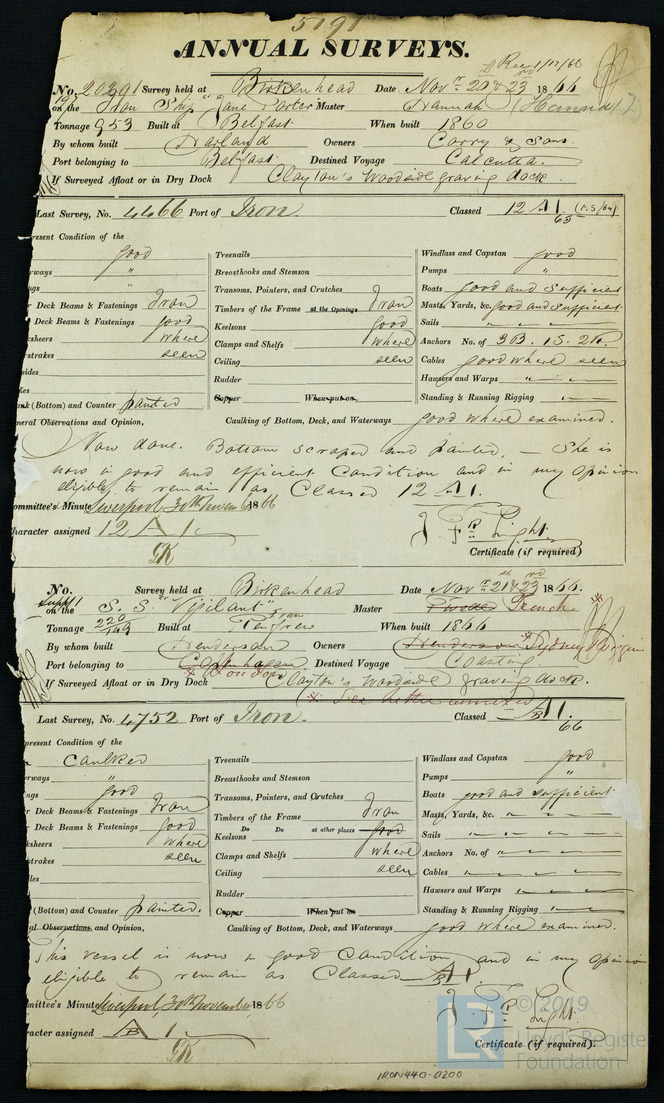 5191
ANNUAL SURVEYS.
Recd 1/12/66
No. 20391 Survey held at Birkenhead Date Novr 20 & 23rd 1866
on the Iron Ship "Jane Porter" Master Hannah (Hannah?)
Tonnage 953 Built at Belfast When built 1860
By whom built Harland Owners Corry & Sons.
Port belonging to Belfast Destined Voyage Calcutta.
If Surveyed Afloat or in Dry Dock Clayton's Woodside graving dock.
Last Survey, No. 4466 Port of Iron. Classed 12 A1. (S.S/64)
65
resent Condition of the
good
rways "
ngs "
r Deck Beams & Fastenings Iron
r Deck Beams & Fastenings good
ksheers where
strakes seen
nides
kes
ank (Bottom) and Counter painted
Treenails
Breasthooks and Stemson
Transoms, Pointers, and Crutches
Timbers of the Frame at the Openings Iron
Keelsons good
Clamps and Shelfs where
Ceiling seen
Rudder
Copper When put on
Windlass and Capstan good
Pumps "
Boats good and sufficient
Masts, Yards, &c. good and sufficient
Sails " " "
Anchors No. of 3B. 1S. 2K.
Cables good where seen
Hawsers and Warps " " "
Standing & Running Rigging " " "
neral Observations and Opinion, Caulking of Bottom, Deck, and Waterways good where examined.
Now done. Bottom scraped and painted, — She is
now in good and efficient Condition and in my Opinion
eligible to remain as Classed 12 A1.
ommittee's Minute Liverpool 30th Novem 1866
haracter assigned 12 A1.
GK
J. F. R. Light.
Certificate (if required)
No. Survey held at Birkenhead Date Novr 21 & 23rd 1866.
Suppt on the S.S "Vigilant" Iron Master French
Tonnage 220/149 Built at Renfrew When built 1866
By whom built Henderson Owners Henderson * Sydney
Port belonging to Copenhagen * London Destined Voyage Coasting
If Surveyed Afloat or in Dry Dock Clayton's Woodside graving dock.
* See letter annexed
Last Survey, No. 4752 Port of Iron. Classed A1.
66
present Condition of the
Caulked
rways "
ngs good
r Deck Beams & Fastenings Iron
r Deck Beams & Fastenings good
ksheers where
trakes seen
des
(Bottom) and Counter painted.
Treenails
Breasthooks and Stemson
Transoms, Pointers, and Crutches
Timbers of the Frame Iron
Do Do at other places good
Keelsons
Clamps and Shelfs where
Ceiling seen
Rudder
Copper When put on
Windlass and Capstan good
Pumps "
Boats good and sufficient
Masts, Yards, &c. " " "
Sails " " "
Anchors No. of " " "
Cables " " "
Hawsers and Warps " " "
Standing & Running Rigging " " "
al Observations and Opinion, Caulking of Bottom, Deck, and Waterways good where examined.
This vessel is now in good Condition and in my Opinion
eligible to remain as Classed A1
mittee's Minute Liverpool, 30th November 1866
racter assigned A1
GK
J. F. R. Light.
Certificate (if required).
LR
© 2019
Lloyd's Register
Foundation
IRON440-0200